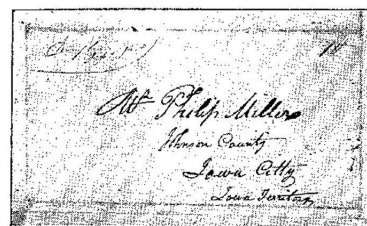 Mr Philip Millers
Johnson County
Iowa Citty
Iowa Territory